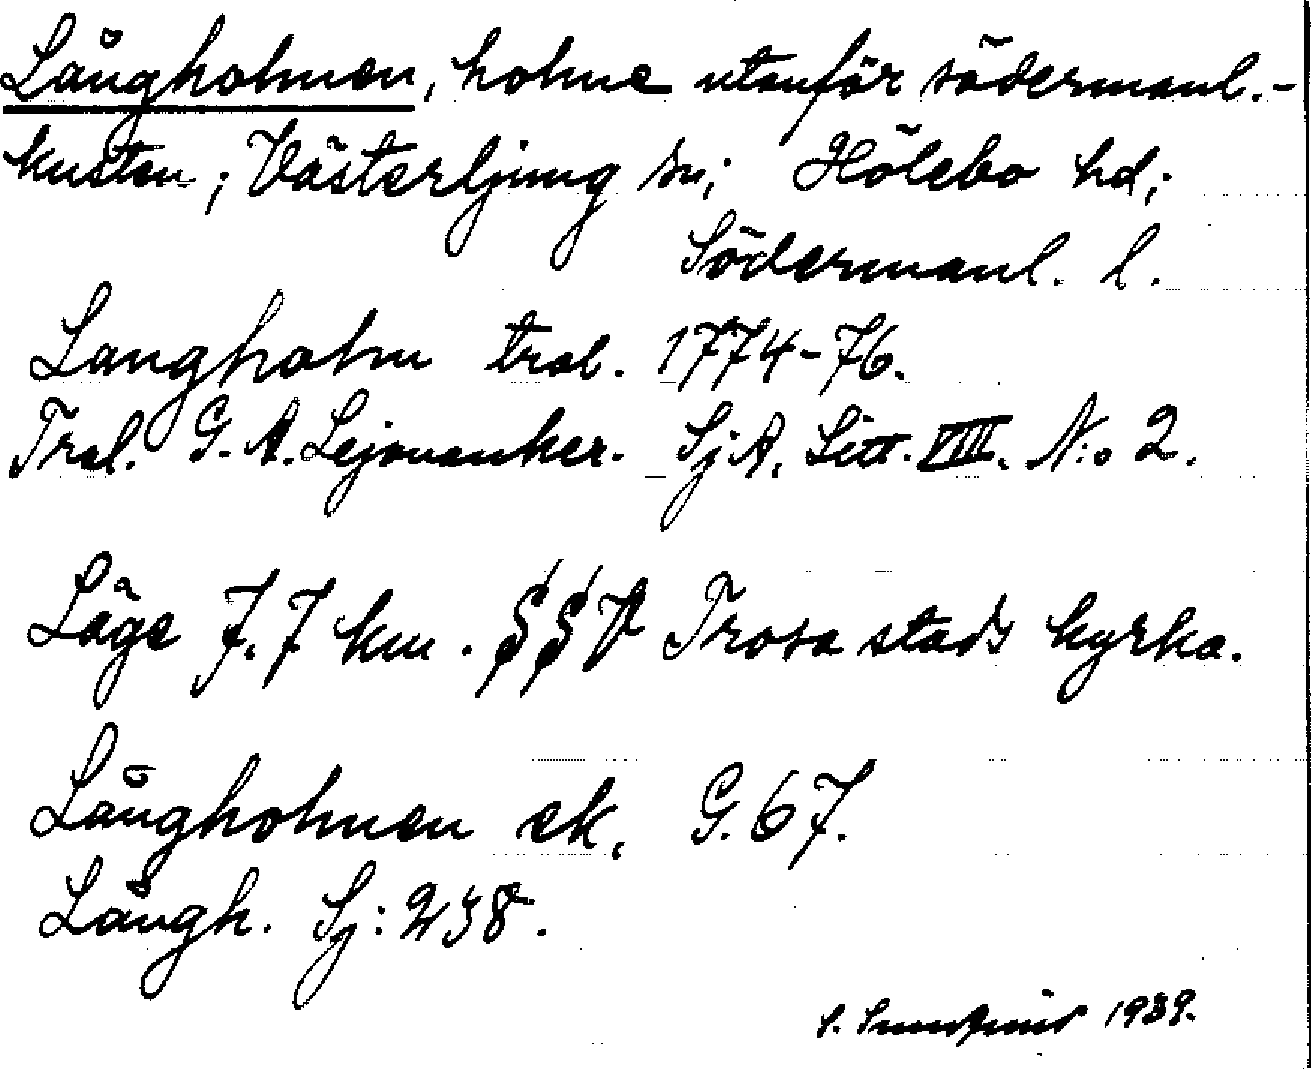 Långholmen, holme utanför södermanl.-
kusten; Västerljung sn; Hölebo hd;
Södermanl. l.
Langholm tral. 1774-76.
Tral. G. A. Lejonanker. SjA. Litt. VIII. N:o 2.
Läge 7.7 km. SSV Trosa stads kyrka.
Långholmen ek. G. 67.
Långh. Sj: 238.
1939.